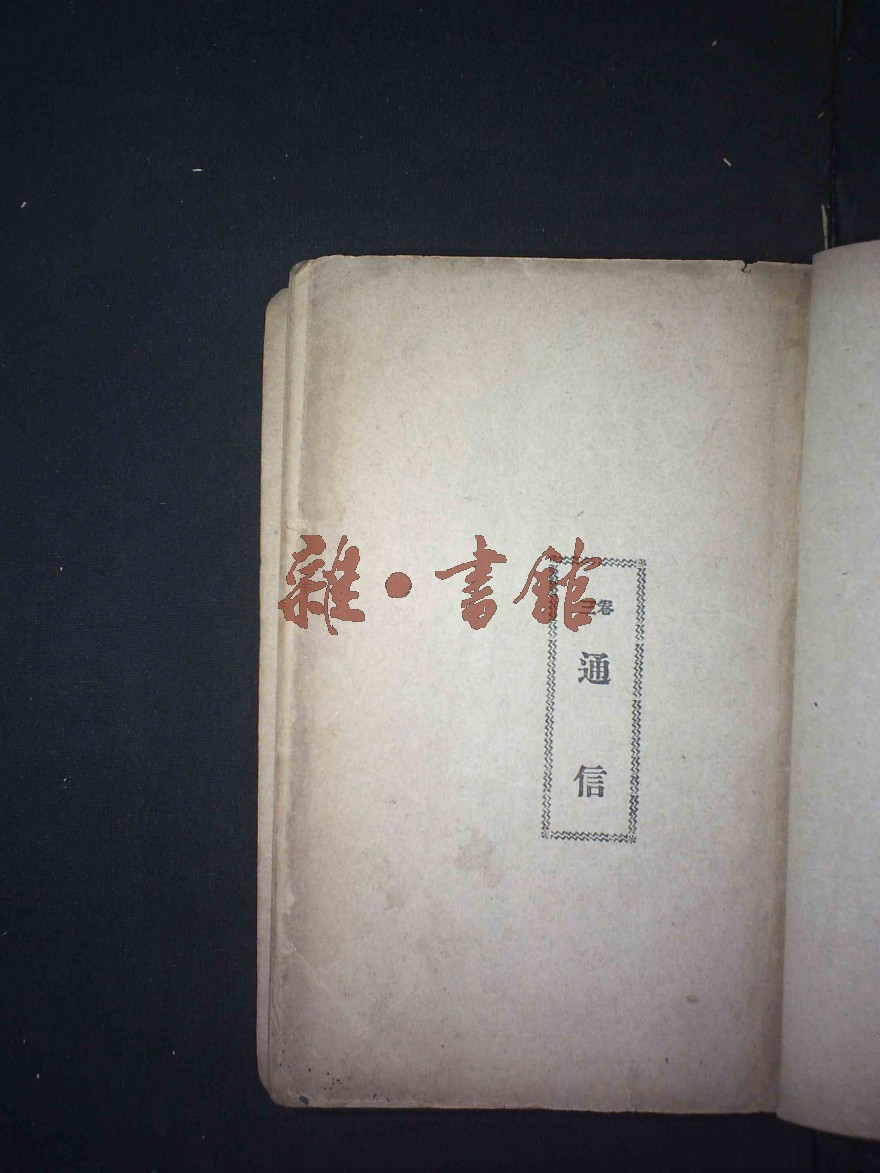 雜·書館
卷三
通信